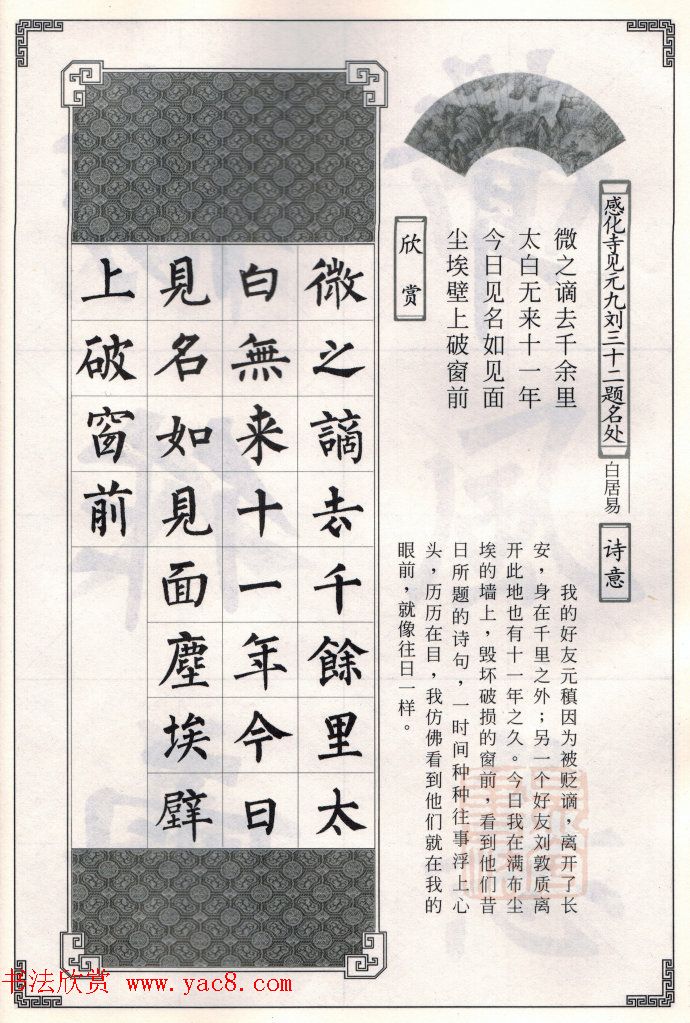 感化寺见元九刘三十二题名处
白居易
微之谪去千余里
太白无来十一年
今日见名如见面
尘埃壁上破窗前
诗意
我的好友元稹因为被贬谪，离开了长
安，身在千里之外；另一个好友刘敦质离
开此地也有十一年之久。今日我在满布尘
埃的墙上，毁坏破损的窗前，看到他们昔
日所题的诗句，一时间种种往事浮上心
头，历历在目，我仿佛看到他们就在我的
眼前，就像往日一样。
欣赏
微之謫去千餘里太
白無来十一年今日
見名如見面塵埃壁
上破窗前
书法欣赏 www.yac8.com